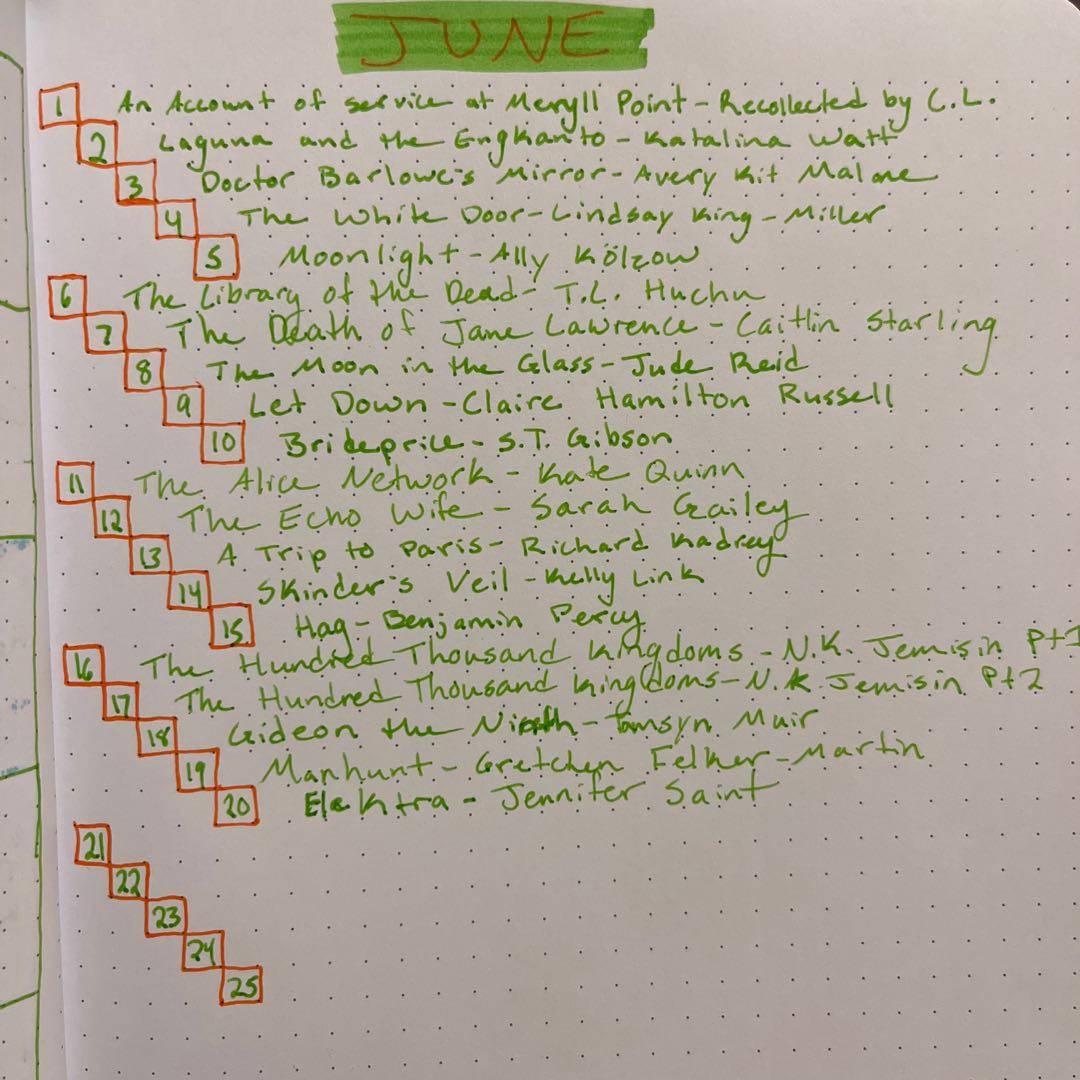 JUNE
1 An Account of service at Meryll Point - Recollected by C.L.
2 Laguna and the Engkanto - Katalina Watt
3 Doctor Barlowe's Mirror - Avery Kit Malone
4 The White Door - Lindsay King - Miller
5 Moonlight - Ally Kölzow
6 The Library of the Dead - T.L. Huchu
7 The Death of Jane Lawrence - Caitlin Starling
8 The Moon in the Glass - Jude Reid
9 Let Down - Claire Hamilton Russell
10 Brideprice - S.T. Gibson
11 The Alice Network - Kate Quinn
12 The Echo Wife - Sarah Gailey
13 A Trip to Paris - Richard Kadrey
14 Skinder's Veil - Kelly Link
15 Hag - Benjamin Percy
16 The Hundred Thousand Kingdoms - N.K. Jemisin Pt 1
17 The Hundred Thousand Kingdoms - N.K. Jemisin Pt 2
18 Gideon the Ninth - Tamsyn Muir
19 Manhunt - Gretchen Felker-Martin
20 Elektra - Jennifer Saint
21
22
23
24
25